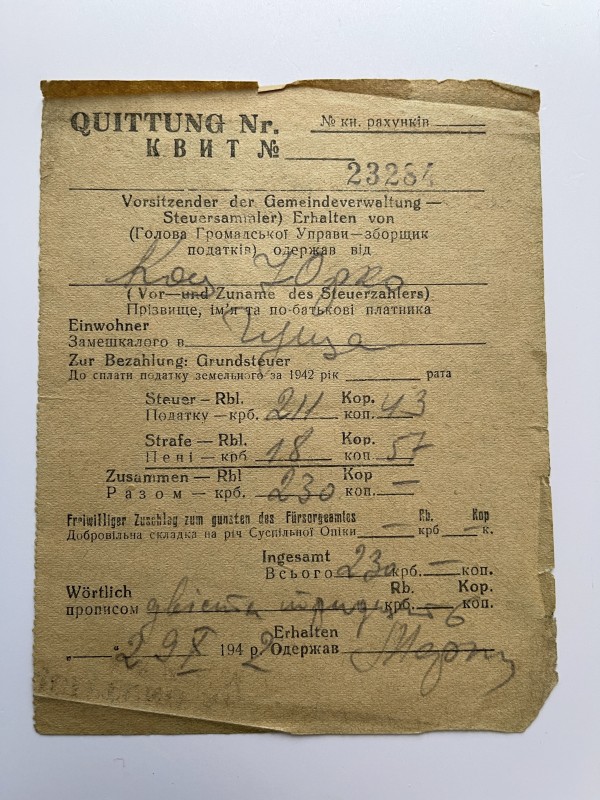 QUITTUNG Nr.
№ кн. рахунків
КВИТ №
23284
Vorsitzender der Gemeindeverwaltung —
Steuersammler) Erhalten von
(Голова Громадської Управи—зборщик
податків) одержав від
Коц Юрко
(Vor—und Zuname des Steuerzahlers)
Прізвище, ім'я та по-батькові платника
Einwohner
Замешкалого в
Zur Bezahlung: Grundsteuer
До сплати податку земельного за 1942 рік рата
Steuer — Rbl. Kop.
Податку — крб. 211 коп. 43
Strafe — Rbl. Kop.
Пені — крб. 18 коп. 57
Zusammen — Rbl Kop
Разом — крб. 230 коп. —
Freiwilliger Zuschlag zum gunsten des Fürsorgeamtes Rb. Kop
Добровільна складка на річ Суспільної Опіки — крб — к.
Ingesamt
Всього 230 крб. — коп.
Wörtlich Rb. Kop.
прописом двісті тридцять крб. коп.
Erhalten
„ “ 29 X 1942 р. Одержав